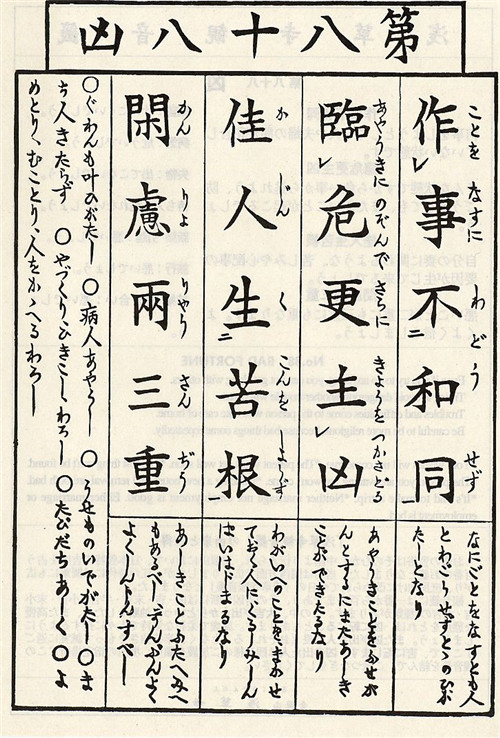 第八十八凶
作レ事不二和同一
ことを なすに わどう せず
臨レ危更主レ凶
あやうきにのぞんで さらに きようをつかさどる
佳人生二苦根一
か じん く こんを しようず
閑慮兩三重
かん りよ りやう さん ぢう
なにごとをなすとも人
とわごうせずとゝのひが
たしとなり
あやうきことをふせが
んとするにまたあしき
ことができたるなり
わがいへのことをまかせ
ておく人にくろう しん
ぱいはじまるなり
あしきことふたへみへ
もあるべしずゐぶんよく
よくしん〴〵すべし
〇ぐわんも叶ひがたし 〇病人あやうし 〇うせものいでがたし 〇ま
ち人きたらず 〇やづくりひきこしわろし 〇たびだちあしく 〇よ
めとり、むことり、人をかゝへるわろし